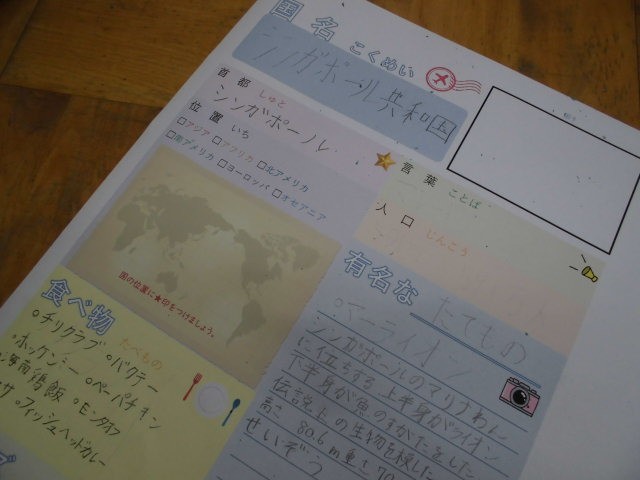 国名 こくめい
シンガポール共和国
首都 しゅと
シンガポール
位置 いち
□アジア □アフリカ □北アメリカ
□南アメリカ □ヨーロッパ □オセアニア
国の位置に★印をつけましょう。
言葉 ことば
人口 じんこう
食べ物 たべもの
○チリクラブ ○バクテー
ホッケンミー ○ペーパチキン
海南鶏飯 ○モンタオフ
○フィッシュヘッドカレー
有名な たてもの
○マーライオン
シンガポールのマリナわん
に位ちする上半身がライオン
下半身が魚のすがたをした
伝説上の生物を模した
高さ 8.6m重さ70
せいぞう